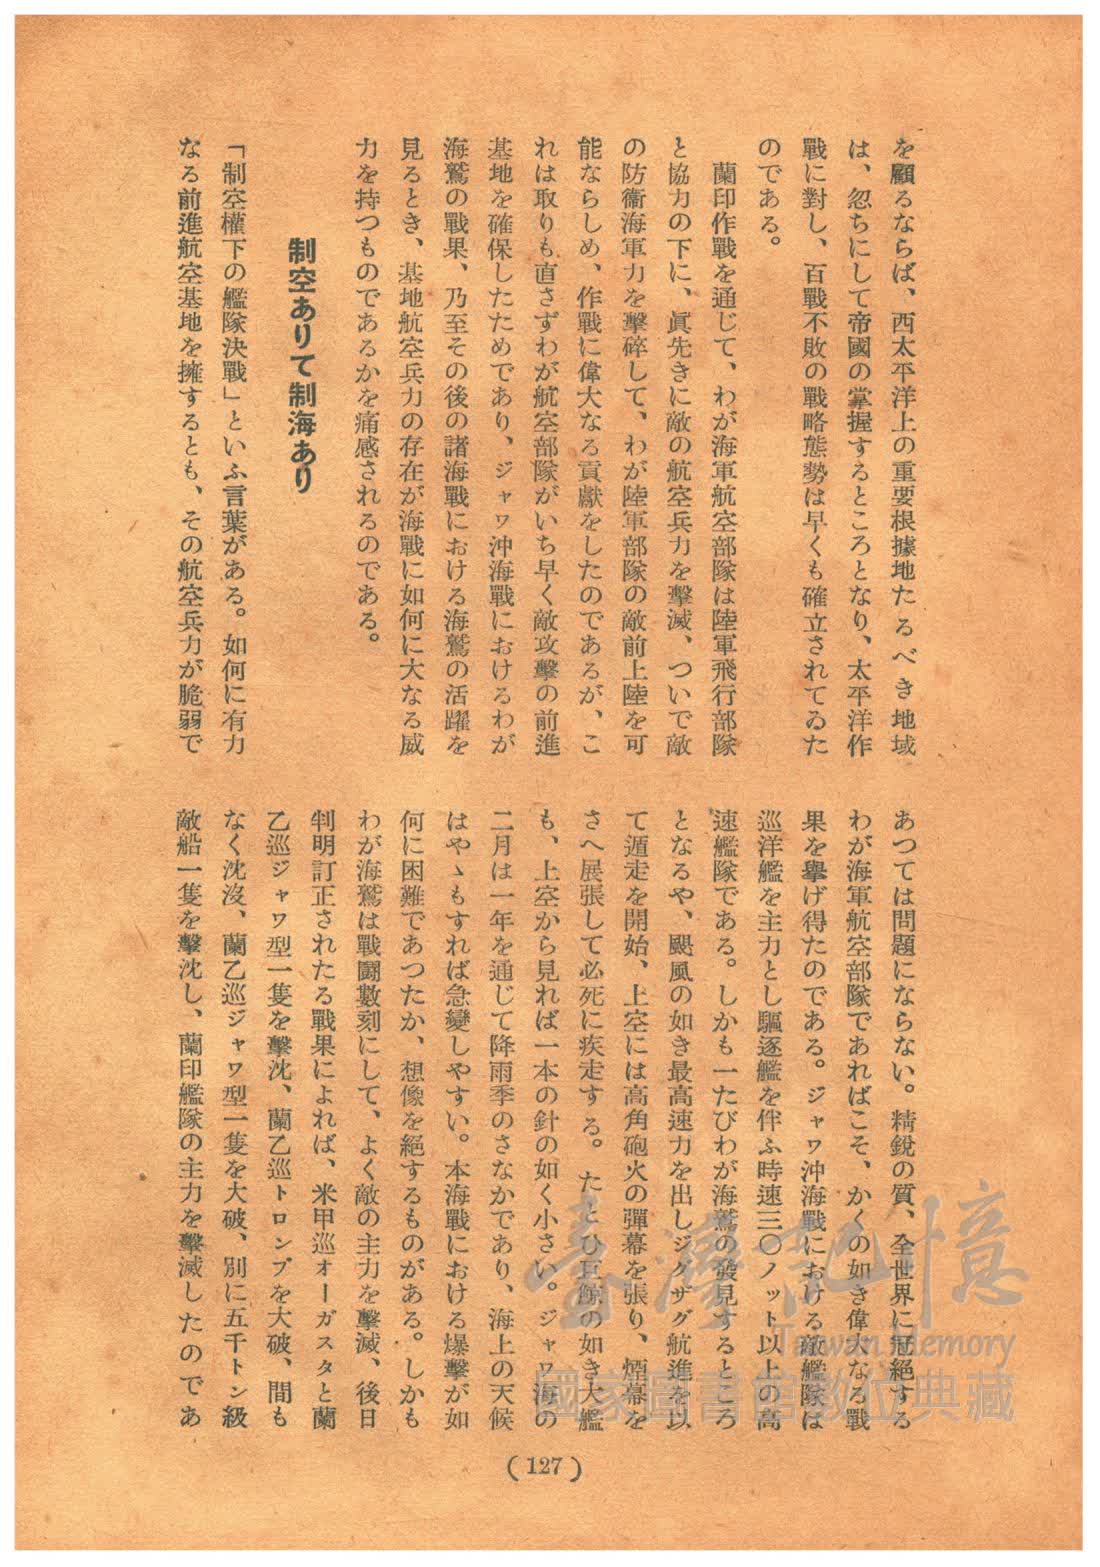 を顧るならば、西太平洋上の重要根據地たるべき地域
は、忽ちにして帝國の掌握するところとなり、太平洋作
戰に對し、百戰不敗の戰略態勢は早くも確立されてゐた
のである。
蘭印作戰を通じて、わが海軍航空部隊は陸軍飛行部隊
と協力の下に、眞先きに敵の航空兵力を擊滅、ついで敵
の防衞海軍力を擊碎して、わが陸軍部隊の敵前上陸を可
能ならしめ、作戰に偉大なる貢獻をしたのであるが、こ
れは取りも直さずわが航空部隊がいち早く敵攻擊の前進
基地を確保したためであり、ジャワ沖海戰におけるわが
海鷲の戰果、乃至その後の諸海戰における海鷲の活躍を
見るとき、基地航空兵力の存在が海戰に如何に大なる威
力を持つものであるかを痛感されるのである。
制空ありて制海あり
「制空權下の艦隊決戰」といふ言葉がある。如何に有力
なる前進航空基地を擁するとも、その航空兵力が脆弱で
あつては問題にならない。精銳の質、全世界に冠絕する
わが海軍航空部隊であればこそ、かくの如き偉大なる戰
果を擧げ得たのである。ジャワ沖海戰における敵艦隊は
巡洋艦を主力とし驅逐艦を伴ふ時速三〇ノット以上の高
速艦隊である。しかも一たびわが海鷲の發見するところ
となるや、颶風の如き最高速力を出しジグザグ航進を以
て遁走を開始、上空には高角砲火の彈幕を張り、煙幕を
さへ展張して必死に疾走する。たとひ巨鯨の如き大艦
も、上空から見れば一本の針の如く小さい。ジャワ海の
二月は一年を通じて降雨季のさなかであり、海上の天候
はやゝもすれば急變しやすい。本海戰における爆擊が如
何に困難であつたか、想像を絕するものがある。しかも
わが海鷲は戰鬪數刻にして、よく敵の主力を擊滅、後日
判明訂正されたる戰果によれば、米甲巡オーガスタと蘭
乙巡ジャワ型一隻を擊沈、蘭乙巡トロンプを大破、間も
なく沈沒、蘭乙巡ジャワ型一隻を大破、別に五千トン級
敵船一隻を擊沈し、蘭印艦隊の主力を擊滅したのであ
(127)
臺灣記憶
Taiwan Memory
國家圖書館數位典藏